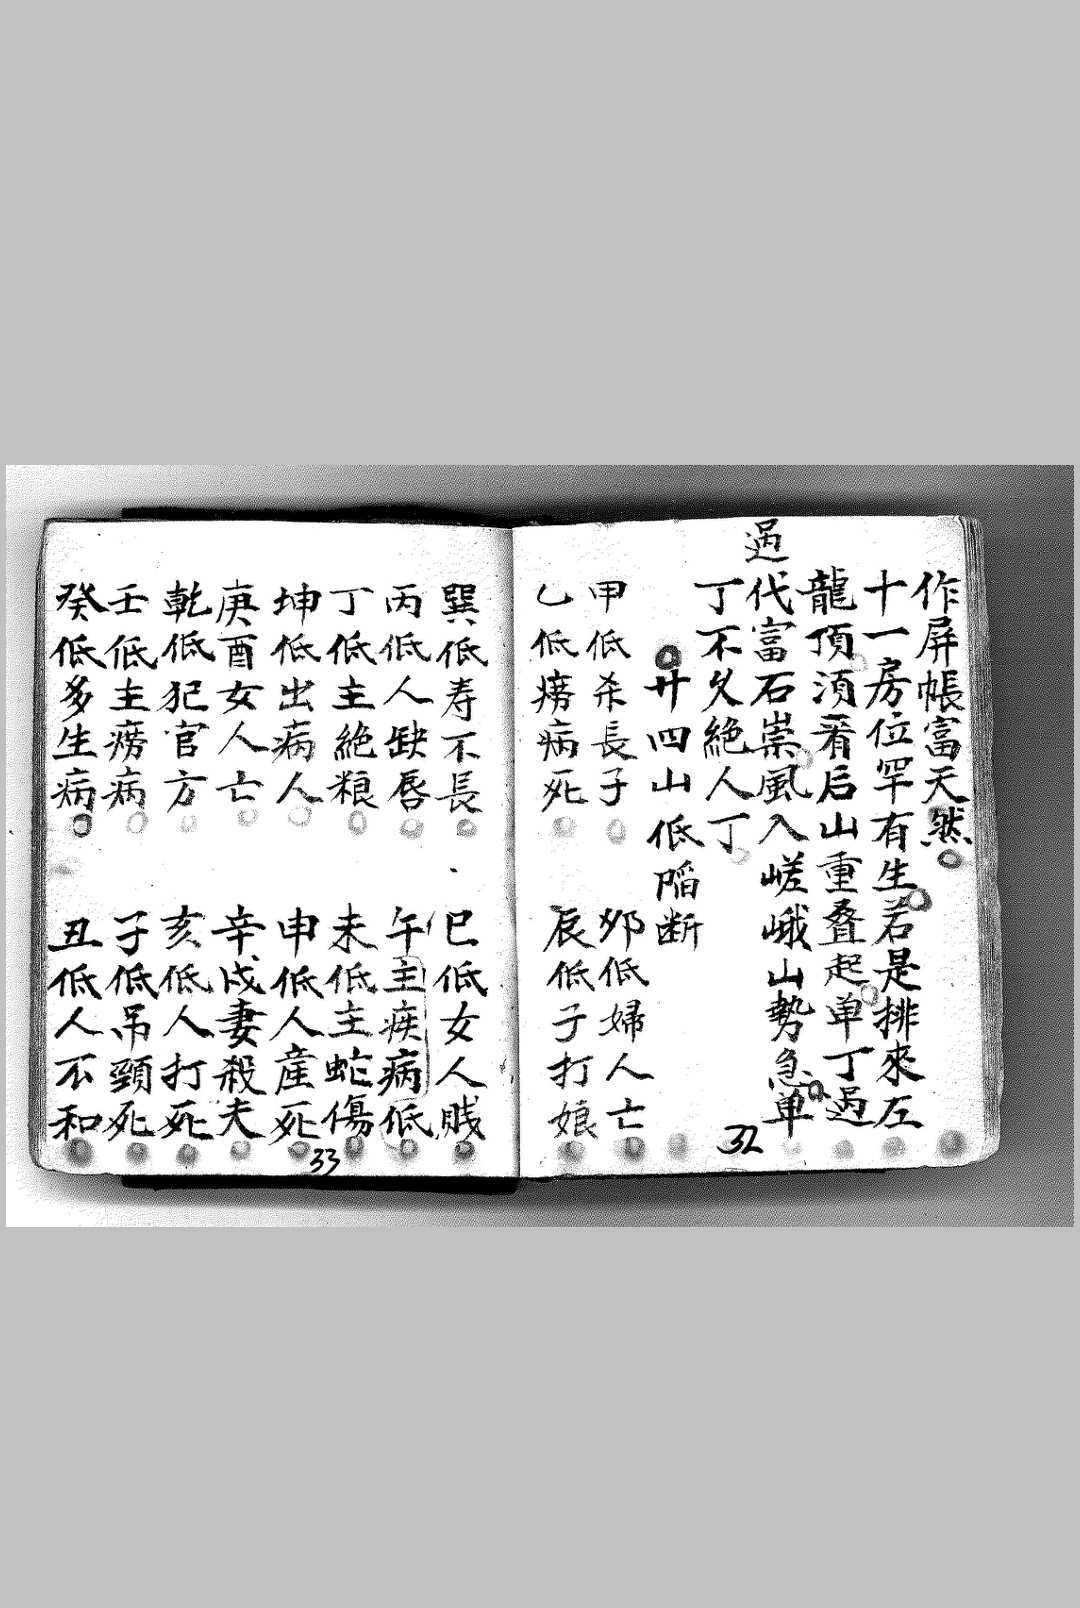 作屏帳富天然
十一房位罕有生若是排來左
龍頂須看后山重叠起单丁過
過
代富石崇風入嵯峨山勢急单
丁不久絕人丁
廿四山低陷断
甲低杀長子
夘低婦人亡
乙低痨病死
辰低子打娘
32
巽低寿不長
巳低女人贱
丙低人缺唇
午主疾病低
丁低主絕粮
未低主蛇傷
坤低出病人
申低人産死
庚酉女人亡
辛戌妻殺夫
乾低犯官方
亥低人打死
壬低主痨病
子低吊頸死
癸低多生病
丑低人不和
33